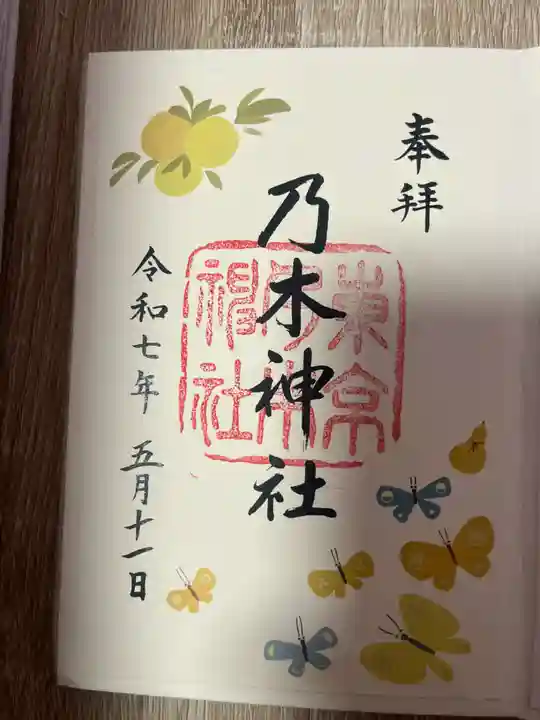 奉拝
乃木神社
東京
乃木
神社
令和七年 五月十一日